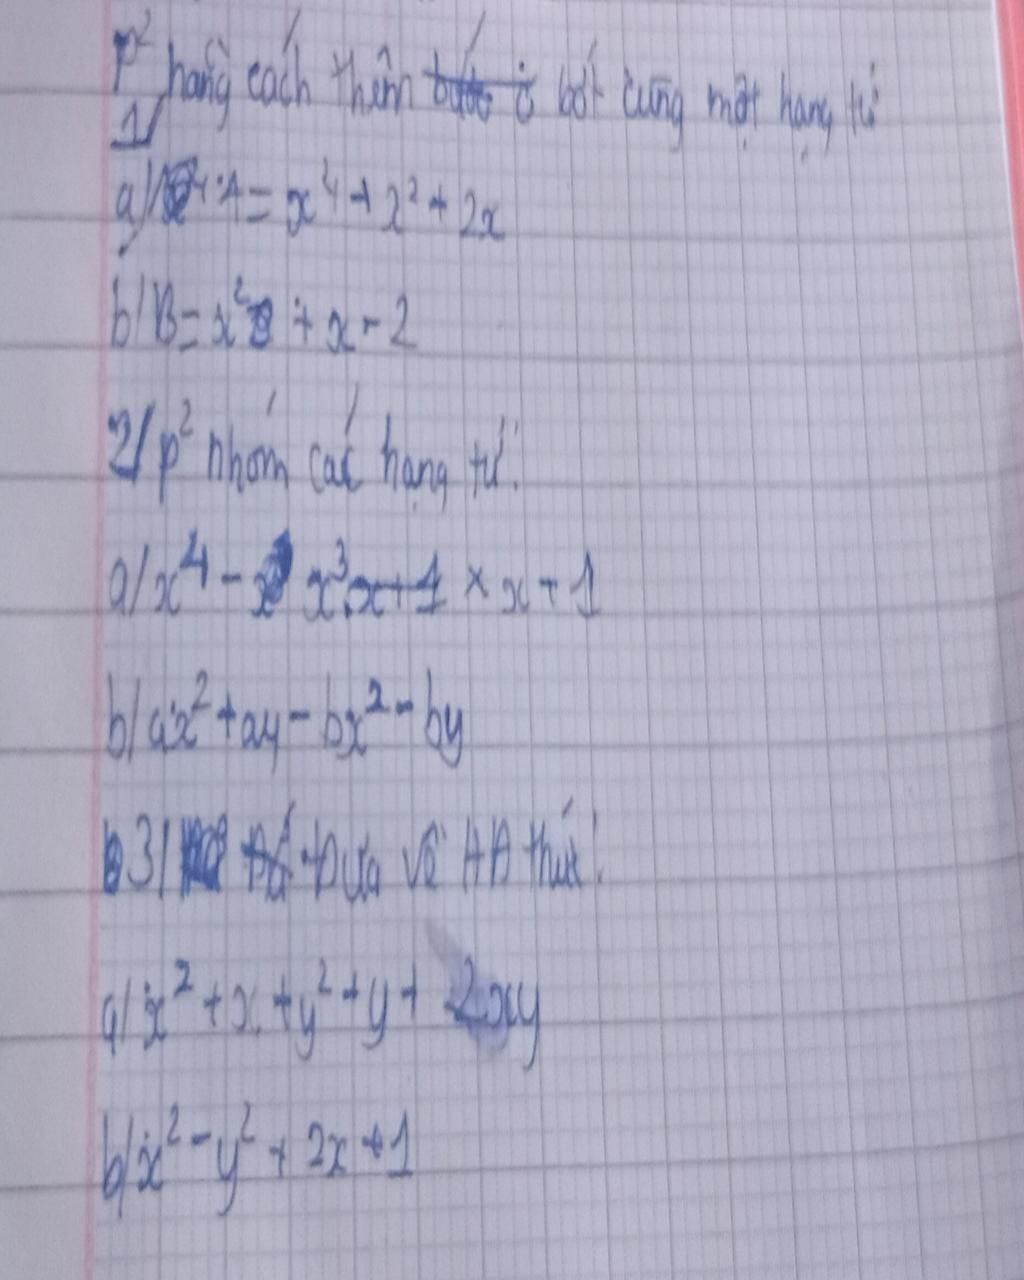 p² bằng cách thêm bớt cùng một hạng tử
1/
a/ A = x⁴ + x² + 2x
b/ B = x² + x - 2
2/ p² nhóm các hạng tử.
a/ x⁴ - x³ x + 1 × x + 1
b/ ax² + ay - bx² - by
3/ Đưa về HĐ thức.
a/ x² + x + y² + y + 2xy
b/ x² - y² + 2x + 1